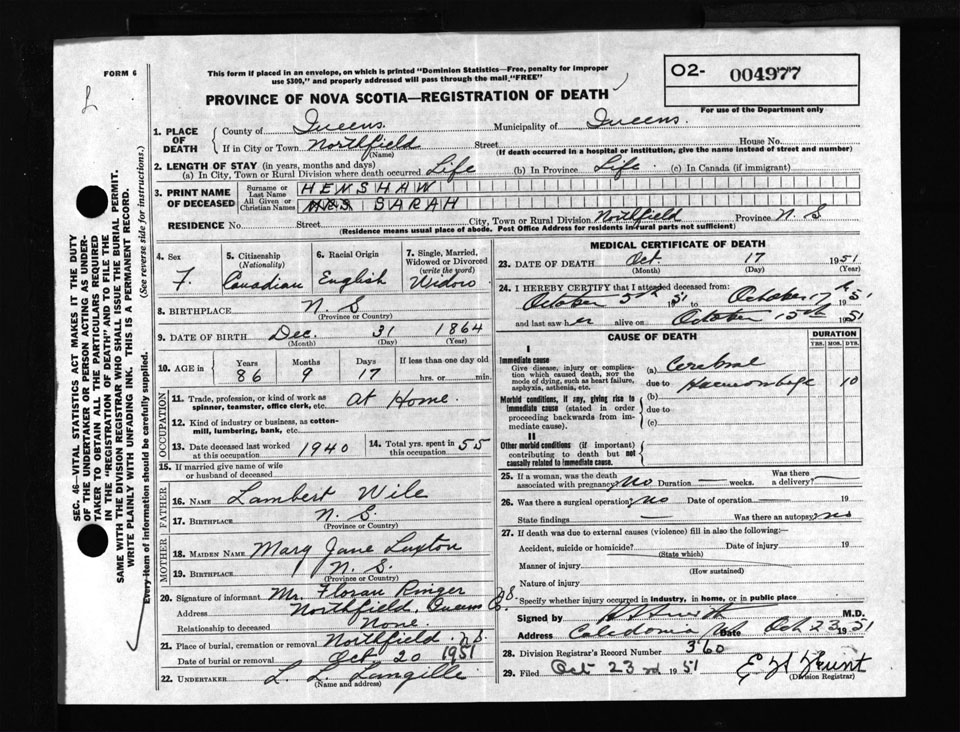 FORM 6
This form if placed in an envelope, on which is printed "Dominion Statistics—Free, penalty for improper
use $300," and properly addressed will pass through the mail "FREE"
O2- 004977
For use of the Department only
PROVINCE OF NOVA SCOTIA—REGISTRATION OF DEATH
1. PLACE OF DEATH
County of Queens Municipality of Queens.
If in City or Town Northfield Street House No.
(Name) (If death occurred in a hospital or institution, give the name instead of street and number)
2. LENGTH OF STAY (in years, months and days)
(a) In City, Town or Rural Division where death occurred Life (b) In Province Life (c) In Canada (if immigrant)
3. PRINT NAME OF DECEASED
Surname or Last Name HENSHAW
All Given or Christian Names MRS SARAH
RESIDENCE No. Street City, Town or Rural Division Northfield Province N. S
(Residence means usual place of abode. Post Office Address for residents in rural parts not sufficient)
4. Sex F.
5. Citizenship (Nationality) Canadian
6. Racial Origin English
7. Single, Married, Widowed or Divorced (write the word) Widow
8. BIRTHPLACE N. S
(Province or Country)
9. DATE OF BIRTH Dec. 31 1864
(Month) (Day) (Year)
10. AGE in Years 86 Months 9 Days 17 If less than one day old hrs. or min.
OCCUPATION
11. Trade, profession, or kind of work as spinner, teamster, office clerk, etc. At Home.
12. Kind of industry or business, as cotton-mill, lumbering, bank, etc
13. Date deceased last worked at this occupation 1940
14. Total yrs. spent in this occupation 55
15. If married give name of wife or husband of deceased
FATHER
16. NAME Lambert Wile
17. BIRTHPLACE N. S.
(Province or Country)
MOTHER
18. MAIDEN NAME Mary Jane Luxton
19. BIRTHPLACE N. S.
(Province or Country)
20. Signature of informant Mr. Floran Ringer
Address Northfield, Queens Co
Relationship to deceased None.
21. Place of burial, cremation or removal Northfield
Date of burial or removal Oct 20 1951
22. UNDERTAKER L. L. Langille
(Name and address)
MEDICAL CERTIFICATE OF DEATH
23. DATE OF DEATH Oct. 17 1951
(Month) (Day) (Year)
24. I HEREBY CERTIFY that I attended deceased from:
October 5th 1951 to October 17th 1951
and last saw her alive on October 15th 1951
CAUSE OF DEATH
DURATION
YRS. MOS. DYS.
I
Immediate cause
Give disease, injury or complication which caused death, NOT the mode of dying, such as heart failure, asphyxia, asthenia, etc.
(a) Cerebral
due to Haemorrhage 10
Morbid conditions, if any, giving rise to immediate cause (stated in order proceeding backwards from immediate cause).
(b)
due to
(c)
II
Other morbid conditions (if important) contributing to death but not causally related to immediate cause.
25. If a woman, was the death associated with pregnancy? no Duration — weeks. Was there a delivery? —
26. Was there a surgical operation? no Date of operation — 19
State findings — Was there an autopsy? no
27. If death was due to external causes (violence) fill in also the following:—
Accident, suicide or homicide? Date of injury 19
(State which)
Manner of injury
(How sustained)
Nature of injury
Specify whether injury occurred in industry, in home, or in public place
Signed by M.D.
Address Caledonia Date Oct 23 1951
28. Division Registrar's Record Number 360
29. Filed Oct 23rd 1951
(Division Registrar)
SEC. 46—VITAL STATISTICS ACT MAKES IT THE DUTY
OF THE UNDERTAKER OR PERSON ACTING AS UNDER-
TAKER TO OBTAIN ALL THE PARTICULARS REQUIRED
IN THE "REGISTRATION OF DEATH" AND TO FILE THE
SAME WITH THE DIVISION REGISTRAR WHO SHALL ISSUE THE BURIAL PERMIT.
WRITE PLAINLY WITH UNFADING INK. THIS IS A PERMANENT RECORD.
Every item of information should be carefully supplied. (See reverse side for instructions.)